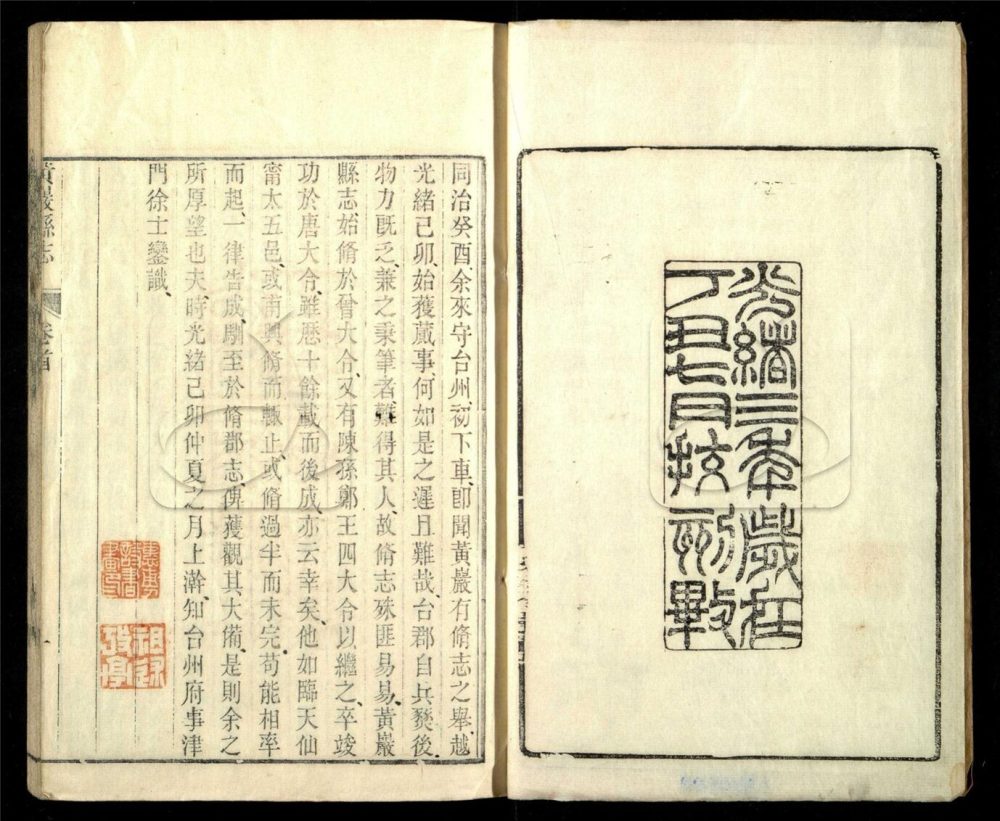 光緒三年歲在
丁丑七月挍刻畢
同治癸酉、余來守台州、初下車、卽聞黃巖有脩志之舉、越
光緒己卯、始獲蕆事、何如是之遲且難哉、台郡自兵燹後、
物力既乏、兼之秉筆者、難得其人、故脩志殊匪易易、黃巖
縣志始脩於晉大令、又有陳孫鄭王四大令以繼之、卒竣
功於唐大令、雖歴十餘載而後成、亦云幸矣、他如臨天仙
甯太五邑、或甫興脩而輒止、或脩過半而未完、苟能相率
而起、一律告成、馴至於脩郡志、俾獲觀其大備、是則余之
所厚望也夫、時光緒己卯仲夏之月上澣、知台州府事津
門徐士鑾識、
黃巖縣志 卷首 一